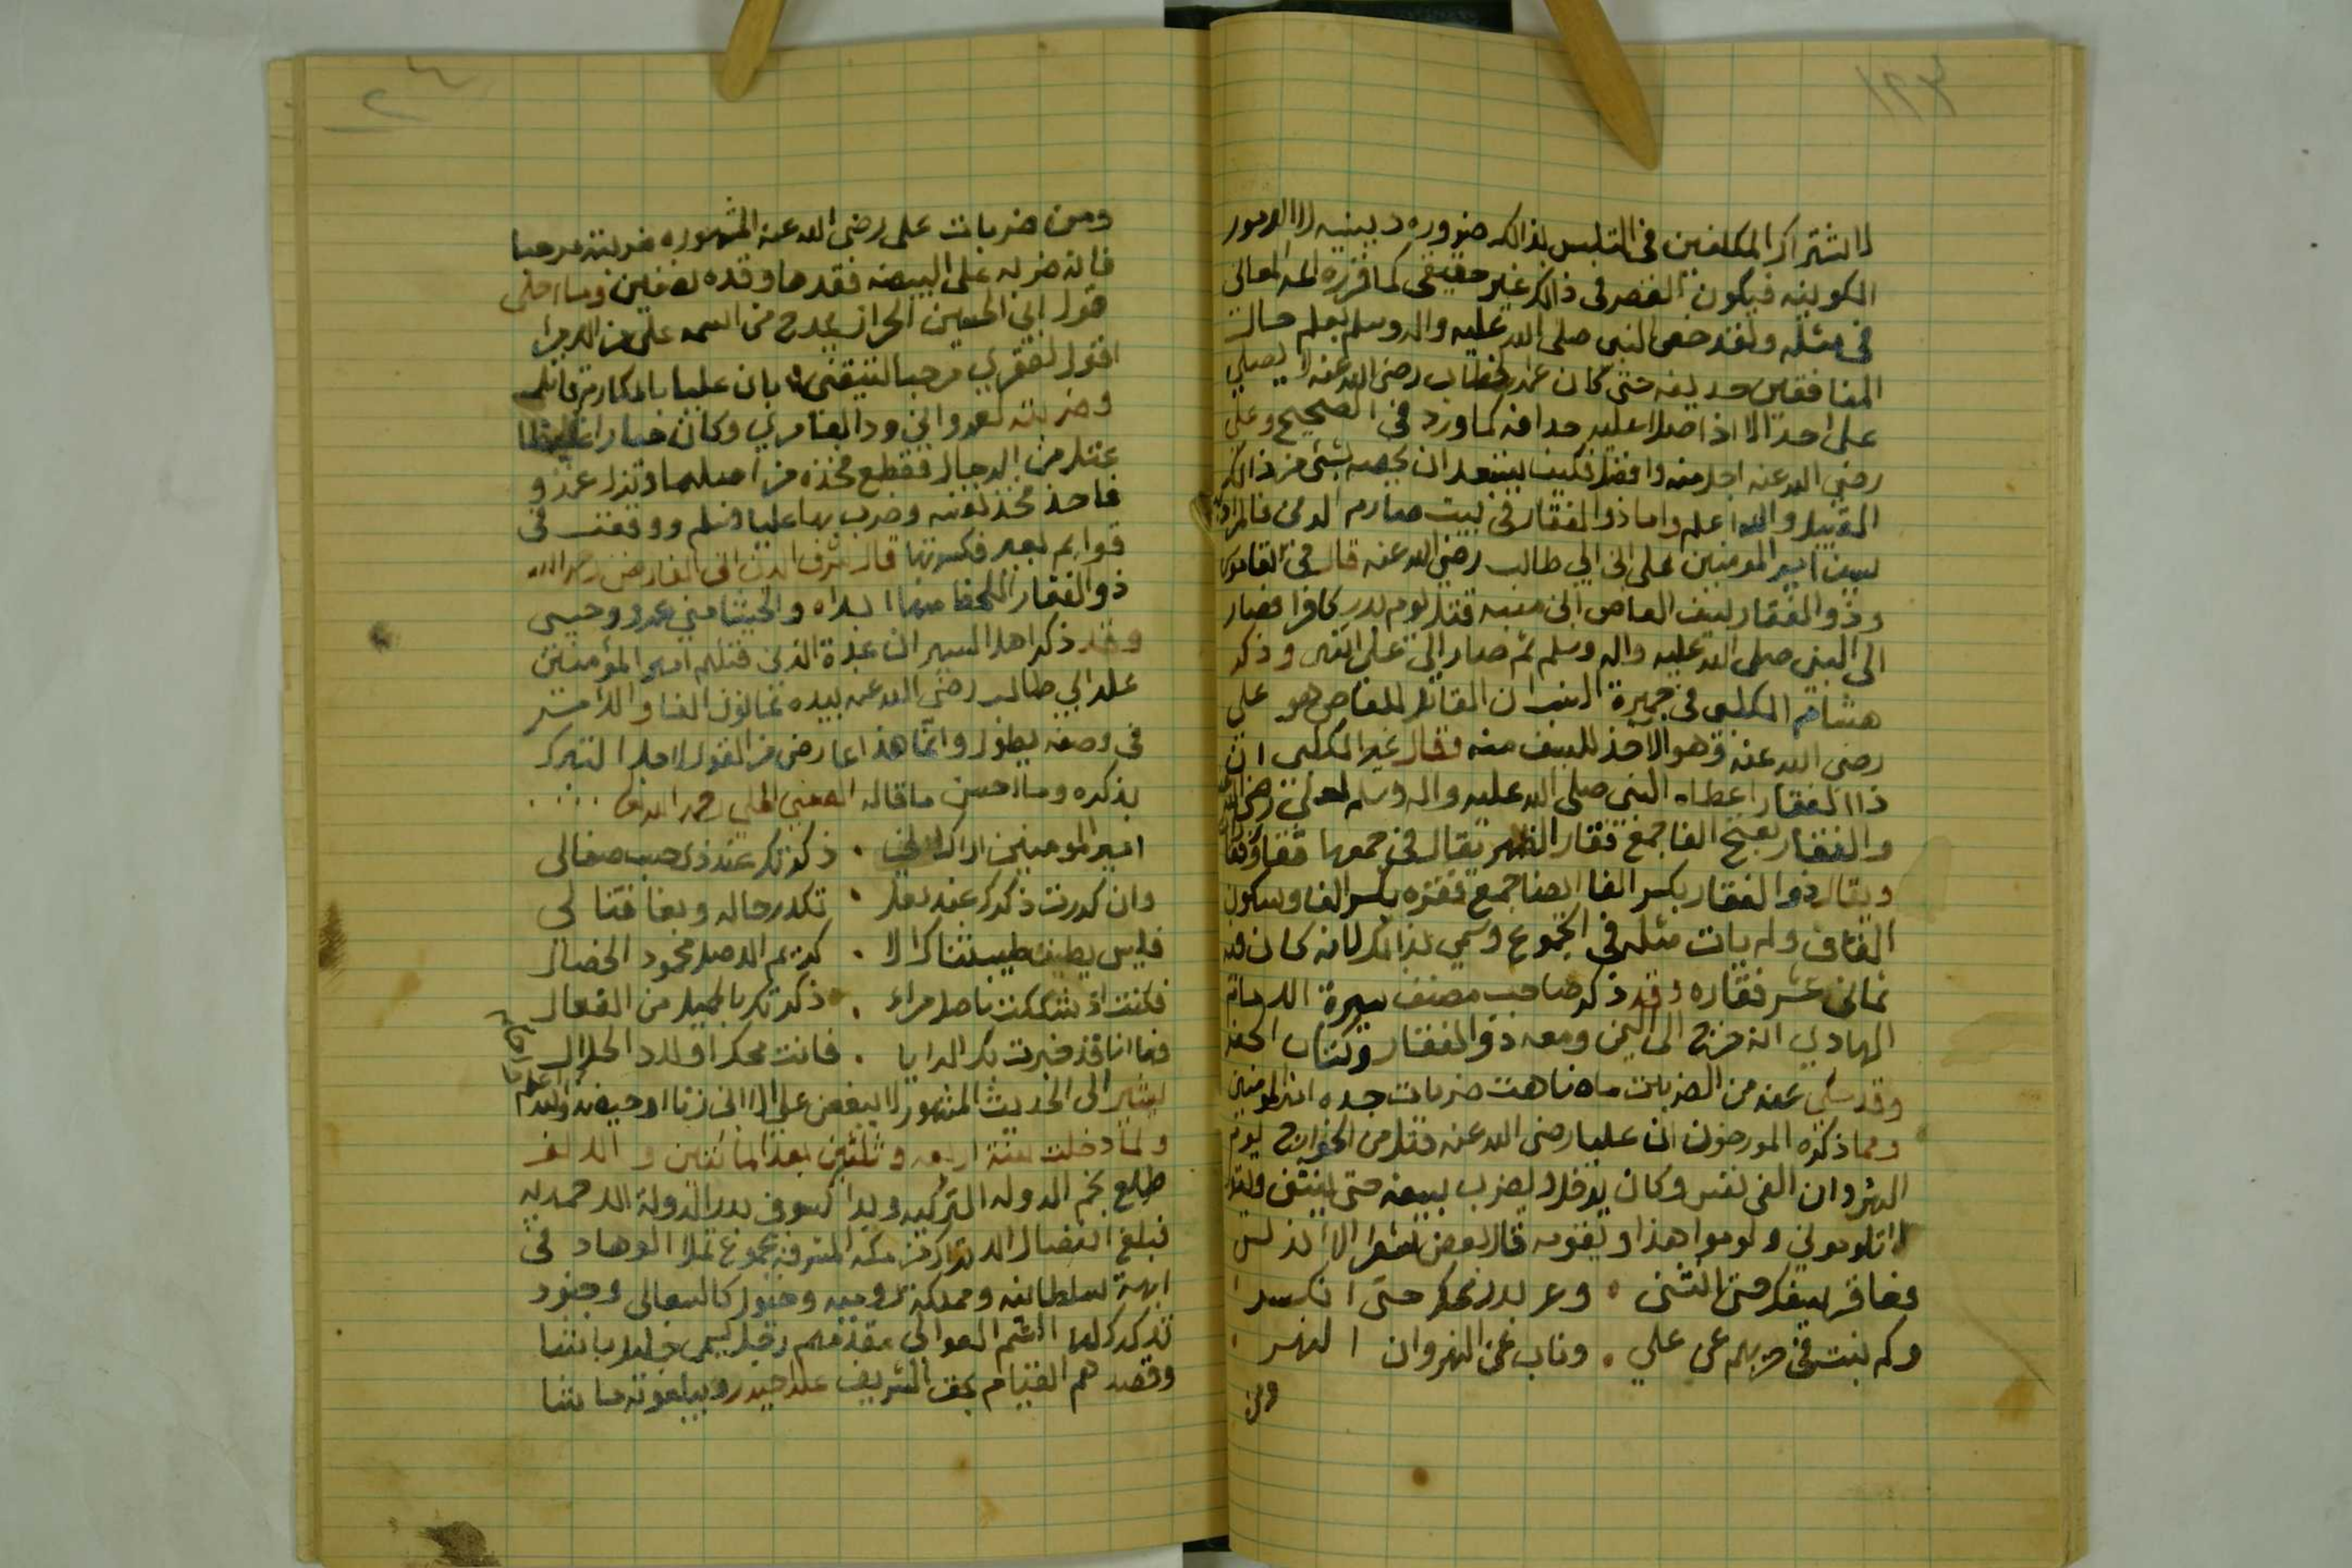 ١٩٣
لاشتراك المكلفين في التلبس بذالك ضروره دينيه لا الامور
الكونيه فيكون القصر في ذالك غير حقيقي كما قرره ائمة المعاني
في مثله ولقد خص النبي صلى الله عليه واله وسلم بعلم حال
المنافقين حذيفه حتى كان عمر بن الخطاب رضي الله عنه لا يصلي
على احد الا اذا صلا عليه حذافه كما ورد في الصحيح وعلي
رضي الله عنه اجل منه وافضل فكيف يستبعد ان يخصه بشئ من ذالك
القبيل والله اعلم واما ذو الفقار في بيت صارم الدين فالمراد به
سيف امير المومنين علي ابن ابي طالب رضي الله عنه قال في القاموس
وذو الفقار سيف العاص ابن منبه قتل يوم بدر كافرا فصار
الى النبي صلى الله عليه واله وسلم ثم صار الى علي انتهى وذكر
هشام الكلبي في جمهرة النسب ان القاتل للعاص هو علي
رضي الله عنه وهو الاخذ للسيف منه وقال غير الكلبي ان
ذا الفقار اعطاه النبي صلى الله عليه واله وسلم لعلي رضي الله عنه
والفقار بفتح الفا جمع فقار الظهر يقال في جمعها فقار وفقا
ويقال ذو الفقار بكسر الفا ايضا جمع فقره بكسر الفا وسكون
القاف ولم يات مثله في الجموع وسمي بذالك لانه كان فيه
ثماني عشر فقاره وقد ذكر صاحب مصنف سيرة الامام
الهادي انه خرج الى اليمن ومعه ذو الفقار وكتاب الجفر
وقد حكي عنه من الضربات ما ضاهت ضربات جده امير المومنين
ومما ذكره المورخون ان عليا رضي الله عنه قتل من الخوارج يوم
النهروان الفي نفس وكان يدخل ويضرب بسيفه حتى ينثني ويقول
لا تلوموني ولوموا هذا ويقومه قال بعض شعرا الاندلس
وعاقر سيفك حتى انثنى . وعربد رمحك حتى انكسر
وكم نبت في حربهم عن علي . وناب عن النهروان النهر
ومن
ومن ضربات علي رضي الله عنه المشهوره ضربته مرحبا
فانه ضربه على البيضه فقدها وقده نصفين وما احلى
قول ابي الحسين الجزار يمدح من اسمه علي
اقول لفقري مرحبا لتيقني بان عليا بالمكارم قاتله
وضربته لعمرو ابن ود العامري وكان جبارا غليظا
عتلا من الرجال فقطع فخذه من اصلها ونزل عمرو
فاخذ فخذ نفسه وضرب بها عليا فسلم ووقعت في
قوايم بعير فكسرتها قال شرف الدين ابن الفارض رحمه الله
ذو الفقار اللحظ منها ابدا والحشا مني عمرو وحيي
وقد ذكر اهل السير ان عدة الذين قتلهم امير المؤمنين
علي ابن ابي طالب رضي الله عنه بيده ثمانون الفا والامر
في وصفه يطول وانما هذا عارض من القول لاجل التبرك
بذكره وما احسن ما قاله الصفي الحلي رحمه الله
امير المومنين اراك اني . ذكرتك عند ذي حسب صفالي
وان كررت ذكرك عند نغل . تكدر حاله وبغا قتالي
فليس يطيق طيب ثناك الا . كريم الاصل محمود الخصال
فكنت اذ شككت باصل مراء . ذكرتك بالجميل من الفعال
فها انا قد خبرت بك البرايا . فانت محك اولاد الحلال
يشير الى الحديث المشهور لا يبغض عليا الا ابن زنا او حيضه والله اعلم
ولما دخلت سنة اربعه وثلثين بعد المائتين والالف
طلع نجم الدوله التركيه وبدا كسوف بدر الدولة الاحمديه
فبلغ انفصال الاتراك من مكه المشرفه بجموع تملا الوهاد في
ابهة سلطانيه ومملكة روميه وخيول كالسعالي وجنود
تدكدك لها الشم العوالي مقدمهم رجل يسمى خليل باشا
وقصدهم القيام بحق الشريف علي حيدر ويبلغونه ما شا